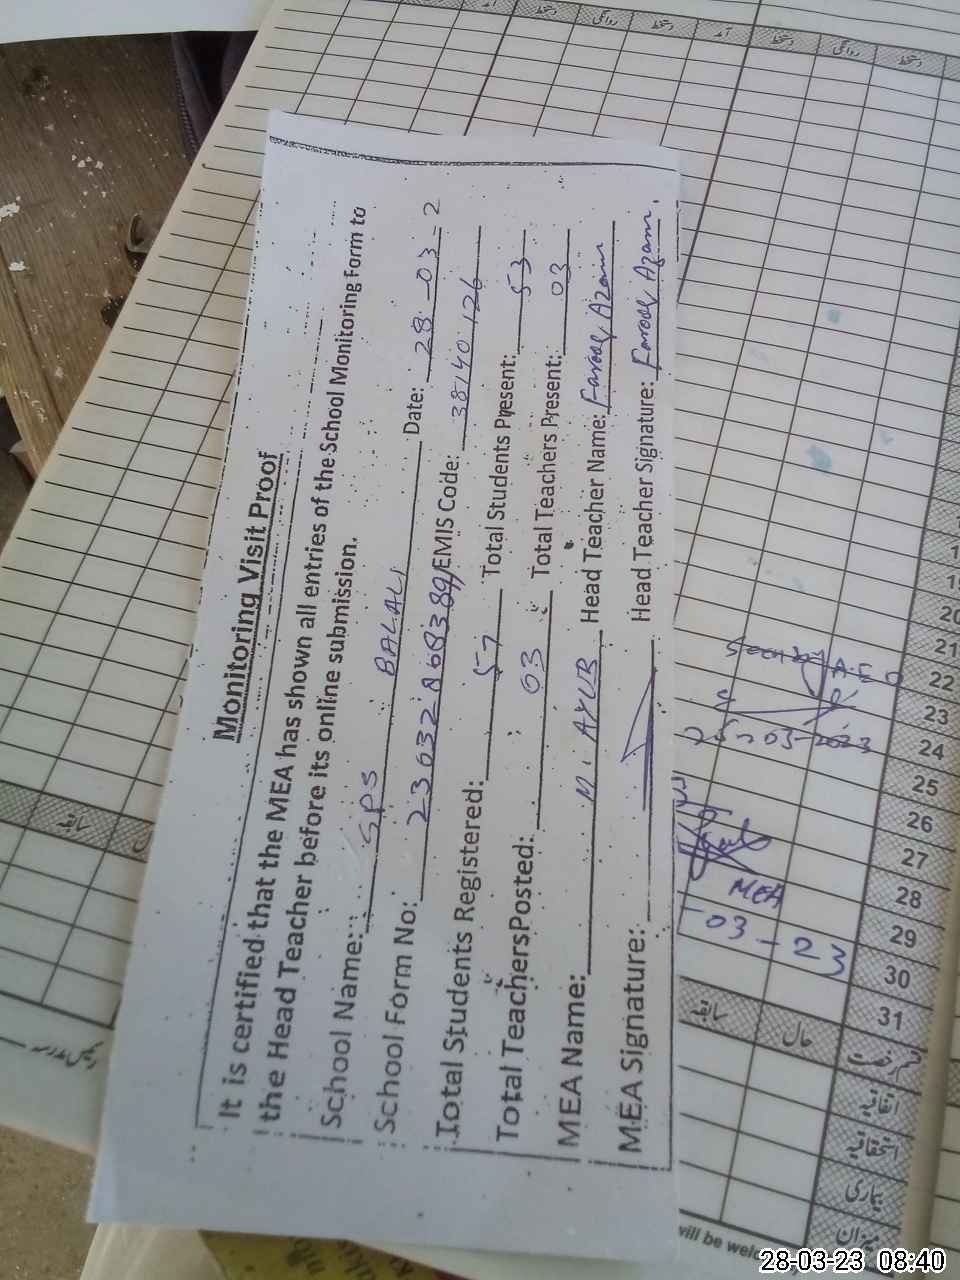 Monitoring Visit Proof
It is certified that the MEA has shown all entries of the School Monitoring Form to
the Head Teacher before its online submission.
School Name: GPS BALALI Date: 28-03-2
School Form No: EMIS Code: 38140126
Total Students Registered: 57 Total Students Present: 53
Total Teachers Posted: 03 Total Teachers Present: 03
MEA Name: M. AYUB Head Teacher Name: Farooq Azam
MEA Signature: Head Teacher Signature: Farooq Azam.
آمد دستخط روانگی دستخط آمد دستخط روانگی دستخط
20
21
22 A.E.O
23
24 03-2023
25
26
27
28 MEA
29 -03-23
30
31
سابقہ
حال
اتفاقیہ
استحقاقیہ
بیماری
میزان
سابقہ
رئیس مدرسہ
will be welc
28-03-23 08:40